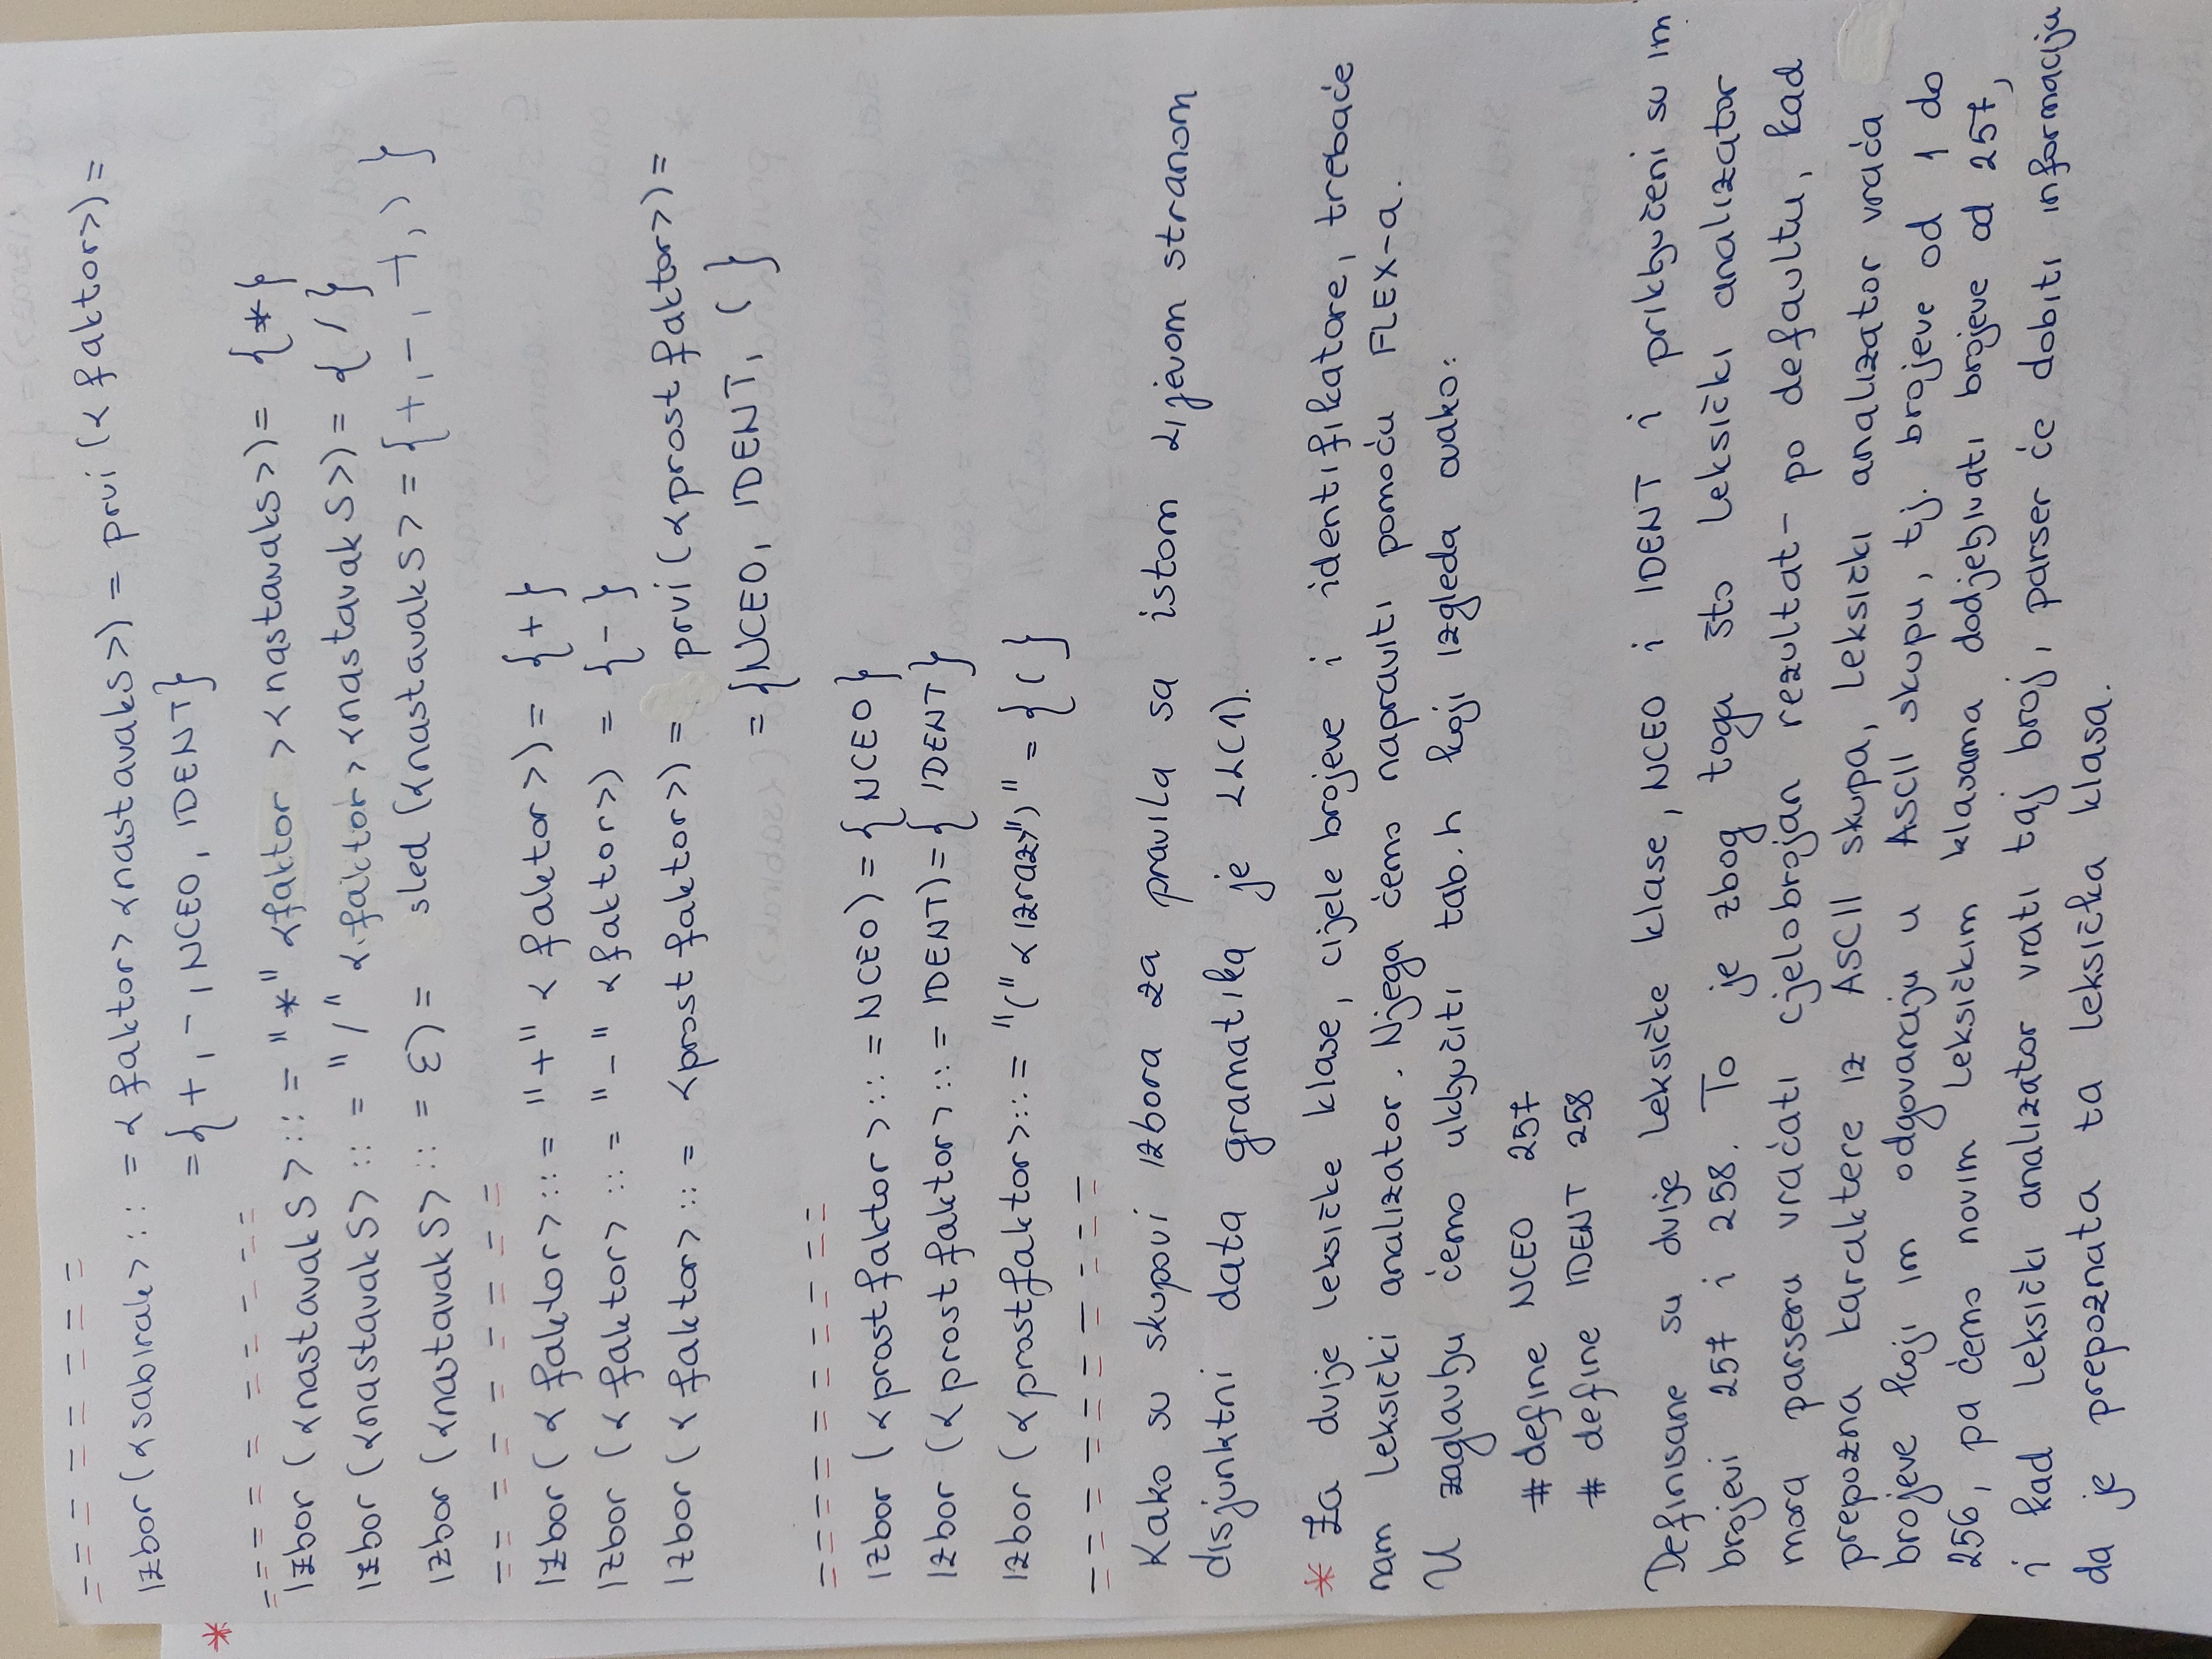 Izbor (<sabirak> ::= <faktor> <nastavakS>) = prvi (<faktor>) =
= {+, -, NCEO, IDENT}
*
Izbor (<nastavakS> ::= "*" <faktor> <nastavakS>) = {*}
Izbor (<nastavakS> ::= "/" <faktor> <nastavakS>) = {/}
Izbor (<nastavakS> ::= ε) = sled (<nastavakS> = {+, -, ⊣, ) }
Izbor (<faktor> ::= "+" <faktor>) = {+}
Izbor (<faktor> ::= "-" <faktor>) = {-}
Izbor (<faktor> ::= <prost faktor>) = prvi (<prost faktor>) =
= {NCEO, IDENT, ( }
Izbor (<prost faktor> ::= NCEO) = {NCEO}
Izbor (<prost faktor> ::= IDENT) = { IDENT }
Izbor (<prost faktor> ::= "(" <izraz>")" = { ( }
Kako su skupovi izbora za pravila sa istom lijevom stranom
disjunktni data gramatika je LL(1).
* Za dvije leksičke klase, cijele brojeve i identifikatore, trebaće
nam leksički analizator. Njega ćemo napraviti pomoću FLEX-a.
U zaglavlju ćemo uključiti tab.h koji izgleda ovako:
# define NCEO 257
# define IDENT 258
Definisane su dvije leksičke klase, NCEO i IDENT i priključeni su im
brojevi 257 i 258. To je zbog toga što leksički analizator
mora parseru vraćati cjelobrojan rezultat- po defaultu, kad
prepozna karaktere iz ASCII skupa, leksički analizator vraća
brojeve koji im odgovaraju u ASCII skupu, tj. brojeve od 1 do
256, pa ćemo novim leksičkim klasama dodjeljivati brojeve od 257,
i kad leksički analizator vrati taj broj, parser će dobiti informaciju
da je prepoznata ta leksička klasa.